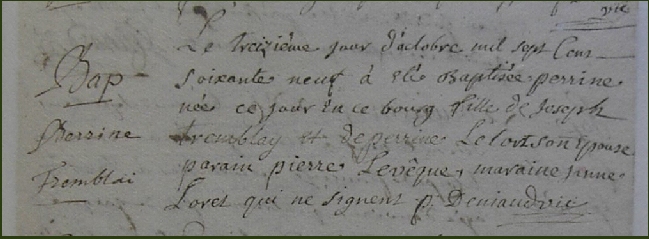 vic
Le treizième jour d'actobre mil sept Cent
Bap
soixante neuf à été Baptisée perrine
née ce jour en ce bourg fille de Joseph
Perrine
tremblay et de perrine Lelort son Epouse
parain pierre Levêque, maraine jeanne
Tremblai
Loret qui ne signent p. Deniaud vic